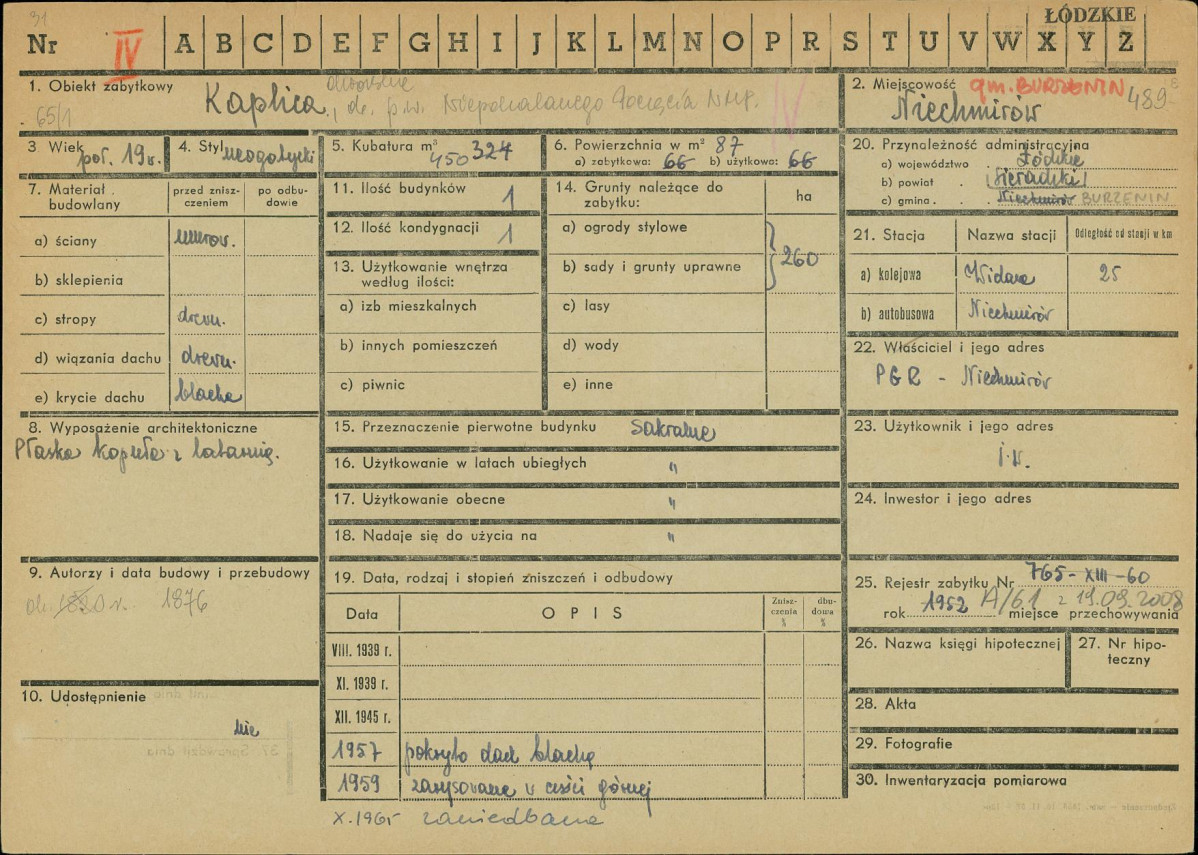 31
ŁÓDZKIE
Nr IV A B C D E F G H I J K L M N O P R S T U V W X Y Z
1. Obiekt zabytkowy
65/1
Kaplica, ob. p.w. Niepokalanego Poczęcia NMP.
IV
2. Miejscowość gm. BURZENIN 489
Niechmirów
3 Wiek poł. 19 w.
4. Styl neogotycki
5. Kubatura m³ 450 324
6. Powierzchnia w m² 87
a) zabytkowa: 66 b) użytkowa: 66
7. Materiał budowlany
przed zniszczeniem
po odbudowie
a) ściany murow.
b) sklepienia
c) stropy drewn.
d) wiązania dachu drewn.
e) krycie dachu blacha
8. Wyposażenie architektoniczne
Płaska kopuła z latarnią.
9. Autorzy i data budowy i przebudowy
ok. 1820 r. 1876
10. Udostępnienie
nie
11. Ilość budynków 1
12. Ilość kondygnacji 1
13. Użytkowanie wnętrza według ilości:
a) izb mieszkalnych
b) innych pomieszczeń
c) piwnic
14. Grunty należące do zabytku:
ha
a) ogrody stylowe
b) sady i grunty uprawne
260
c) lasy
d) wody
e) inne
15. Przeznaczenie pierwotne budynku sakralne
16. Użytkowanie w latach ubiegłych "
17. Użytkowanie obecne "
18. Nadaje się do użycia na "
19. Data, rodzaj i stopień zniszczeń i odbudowy
Data OPIS Zniszczenia % dbudowa %
VIII. 1939 r.
XI. 1939 r.
XII. 1945 r.
1957 pokryto dach blachą
1959 zarysowane w części górnej
X.1965 zaniedbana
20. Przynależność administracyjna
a) województwo Łódzkie
b) powiat (Sieradzki)
c) gmina Niechmirów BURZENIN
21. Stacja Nazwa stacji Odległość od stacji w km
a) kolejowa Widawa 25
b) autobusowa Niechmirów
22. Właściciel i jego adres
PGR - Niechmirów
23. Użytkownik i jego adres
j.w.
24. Inwestor i jego adres
25. Rejestr zabytku Nr 765-XIII-60
rok 1952 A/61 z 19.09.2008 miejsce przechowywania
26. Nazwa księgi hipotecznej
27. Nr hipoteczny
28. Akta
29. Fotografie
30. Inwentaryzacja pomiarowa